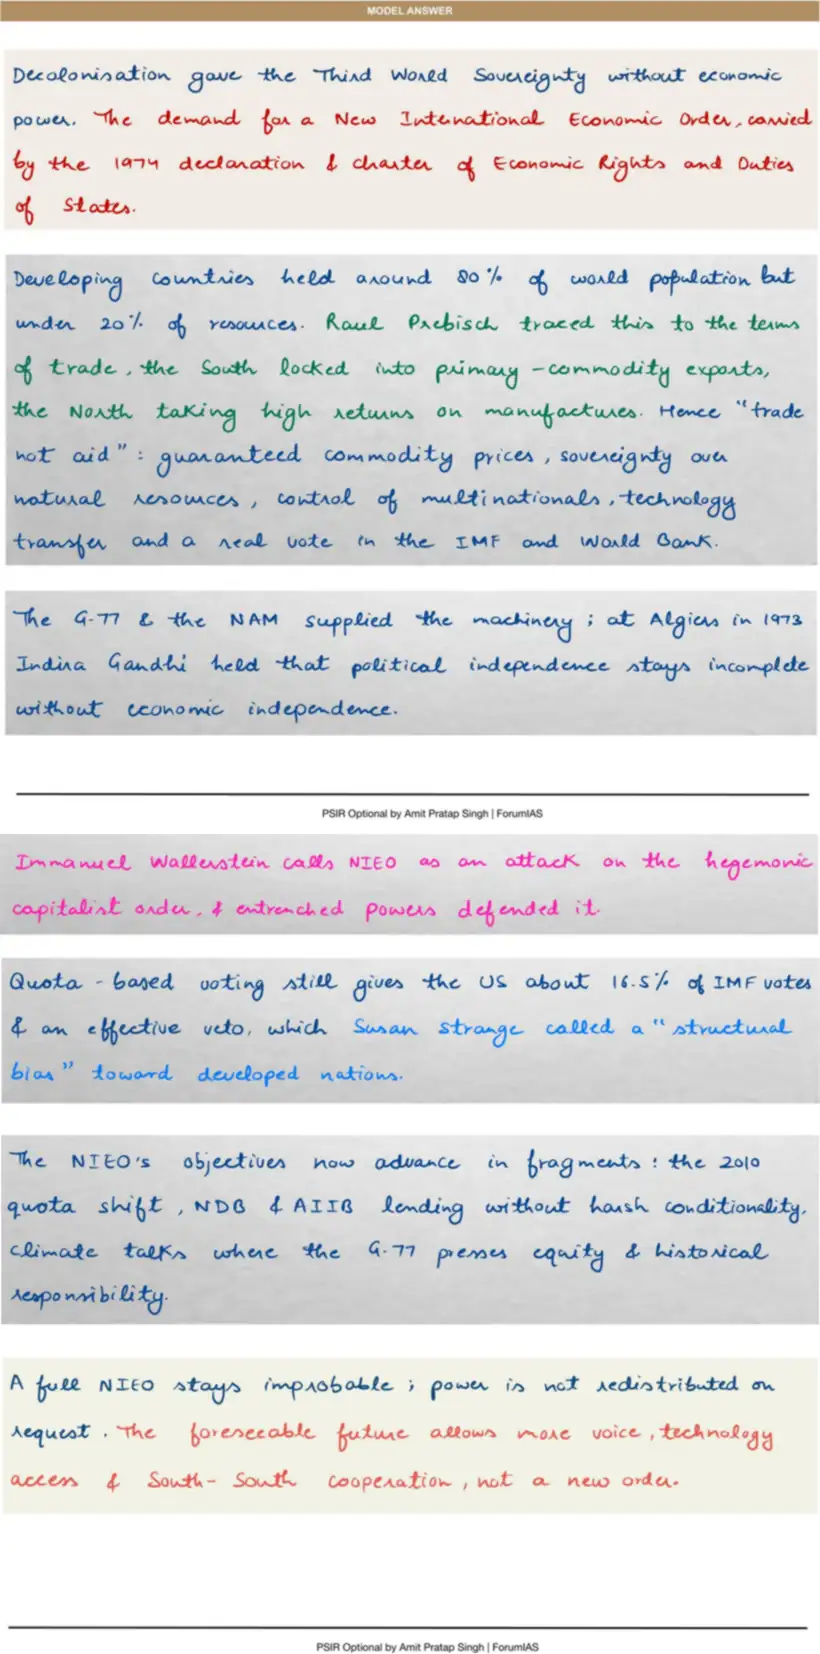 MODEL ANSWER
Decolonisation gave the Third World Sovereignty without economic
power. The demand for a New International Economic Order, carried
by the 1974 declaration & charter of Economic Rights and Duties
of States.
Developing countries held around 80% of world population but
under 20% of resources. Raul Prebisch traced this to the terms
of trade, the South locked into primary-commodity exports,
the North taking high returns on manufactures. Hence "trade
not aid": guaranteed commodity prices, sovereignty over
natural resources, control of multinationals, technology
transfer and a real vote in the IMF and World Bank.
The G-77 & the NAM supplied the machinery; at Algiers in 1973
Indira Gandhi held that political independence stays incomplete
without economic independence.
PSIR Optional by Amit Pratap Singh | ForumIAS
Immanuel Wallerstein calls NIEO as an attack on the hegemonic
capitalist order, & entrenched powers defended it.
Quota-based voting still gives the US about 16.5% of IMF votes
& an effective veto, which Susan Strange called a "structural
bias" toward developed nations.
The NIEO's objectives now advance in fragments: the 2010
quota shift, NDB & AIIB lending without harsh conditionality,
climate talks where the G-77 presses equity & historical
responsibility.
A full NIEO stays improbable; power is not redistributed on
request. The foreseeable future allows more voice, technology
access & South-South cooperation, not a new order.
PSIR Optional by Amit Pratap Singh | ForumIAS